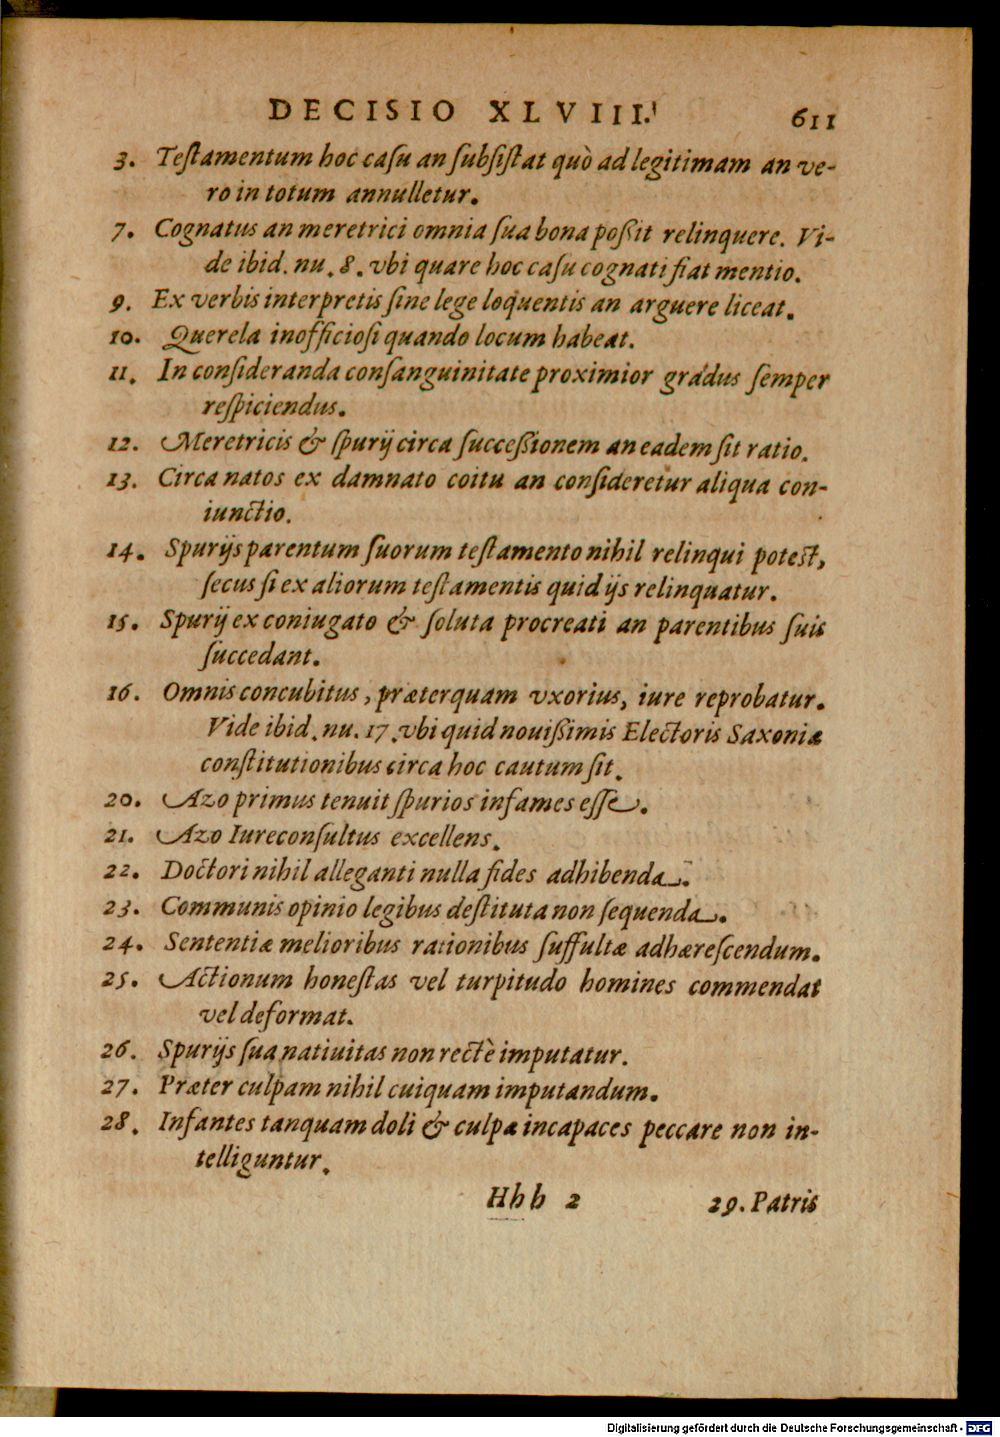 DECISIO XLVIII. 611
3. Teſtamentum hoc caſu an ſubſiſtat quò ad legitimam an ve-
ro in totum annulletur.
7. Cognatus an meretrici omnia ſua bona poßit relinquere. Vi-
de ibid. nu. 8. vbi quare hoc caſu cognati fiat mentio.
9. Ex verbis interpretis ſine lege loquentis an arguere liceat.
10. Querela inofficioſi quando locum habeat.
11. In conſideranda conſanguinitate proximior gradus ſemper
reſpiciendus.
12. Meretricis & ſpurij circa ſucceßionem an eadem ſit ratio.
13. Circa natos ex damnato coitu an conſideretur aliqua con-
iunctio.
14. Spurijs parentum ſuorum teſtamento nihil relinqui potest,
ſecus ſi ex aliorum teſtamentis quid ijs relinquatur.
15. Spurij ex coniugato & ſoluta procreati an parentibus ſuis
ſuccedant.
16. Omnis concubitus, præterquam vxorius, iure reprobatur.
Vide ibid. nu. 17. vbi quid nouißimis Electoris Saxoniæ
conſtitutionibus circa hoc cautum ſit.
20. Azo primus tenuit ſpurios infames eſſe.
21. Azo Iureconſultus excellens.
22. Doctori nihil alleganti nulla fides adhibenda.
23. Communis opinio legibus deſtituta non ſequenda.
24. Sententiæ melioribus rationibus ſuffultæ adhæreſcendum.
25. Actionum honeſtas vel turpitudo homines commendat
vel deformat.
26. Spurijs ſua natiuitas non rectè imputatur.
27. Præter culpam nihil cuiquam imputandum.
28. Infantes tanquam doli & culpæ incapaces peccare non in-
telliguntur.
Hhh 2 29. Patris
Digitalisierung gefördert durch die Deutsche Forschungsgemeinschaft - DFG